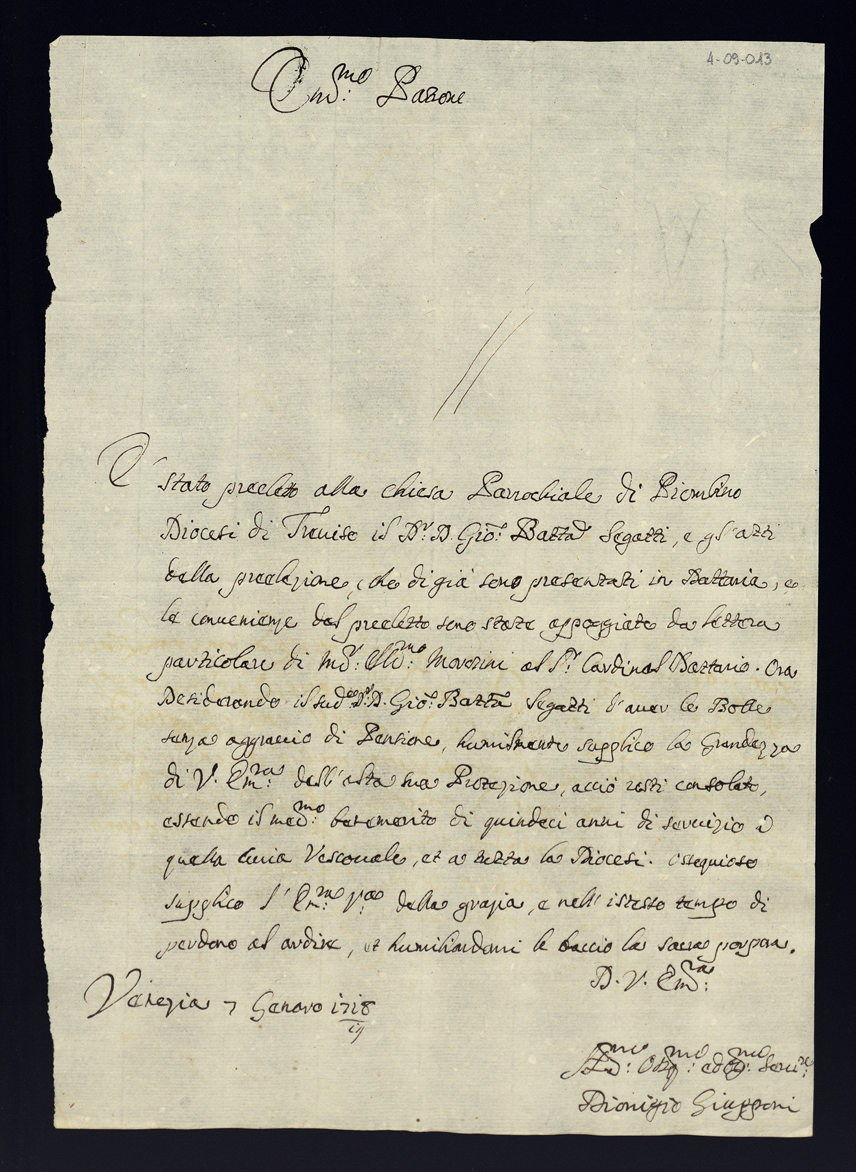 4-09-013
Em:mo Padrone
È stato preeletto alla chiesa Parrochiale di Piombino
Diocesi di Treviso il Dr: D. Gio: Batta Segatti, e gl'atti
della preelezione, che di già sono presentati in Dattaria, e
le convenienze del preeletto sono state appoggiate da lettera
particolare di Mr: Ill:mo Morosini al Sr: Cardinal Dattario. Ora
Desiderando il sud:o Dr: D. Gio: Batta Segatti l'aver le Bolle
senza aggravio di Pensione, humilmente supplico la Grandezza
di V. Em:za dell'alta sua Protezione, acciò resti consolato,
essendo il med:mo benemerito di quindeci anni di servizio à
quella Curia Vescovale, et a tutta la Diocesi. Ossequioso
supplico l'Em:za V:a della grazia, e nell'istesso tempo di
perdono al ardire, et humiliandomi le baccio la sacra porpora.
D. V. Em:za
Venezia 7 Genaro 1718
19
Hu:mo Obb:mo ed Oss:mo Servi:re
Dionigio Giupponi